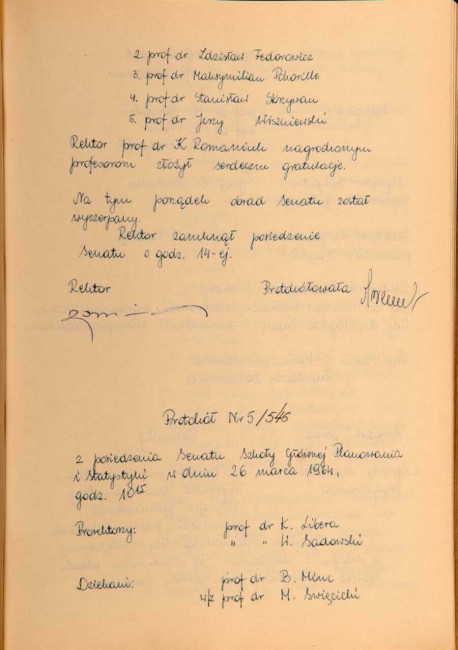 2. prof dr Zdzisław Fedorowicz
3. prof dr Maksymilian Pohorille
4. prof dr Stanisław Skrzywan
5. prof dr Jerzy Wiszniewski
Rektor prof dr K Romaniuk nagrodzonym
profesorom złożył serdeczne gratulacje.
Na tym porządek obrad Senatu został
wyczerpany.
Rektor zamknął posiedzenie
Senatu o godz. 14-ej.
Rektor Protokółowała
Protokół Nr 5/546
z posiedzenia Senatu Szkoły Głównej Planowania
i Statystyki w dniu 26 marca 1964,
godz. 10 15
Prorektorzy: prof dr K. Libera
" " W. Sadowski
Dziekani: prof dr B. Minc
w/z prof dr M. Święcicki